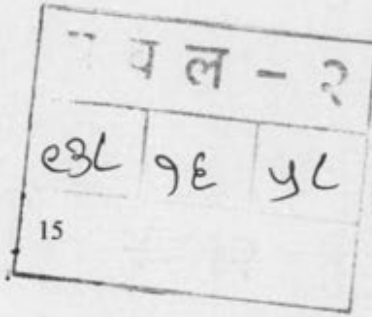 प व ल - २
९३८ १६ ५८
15